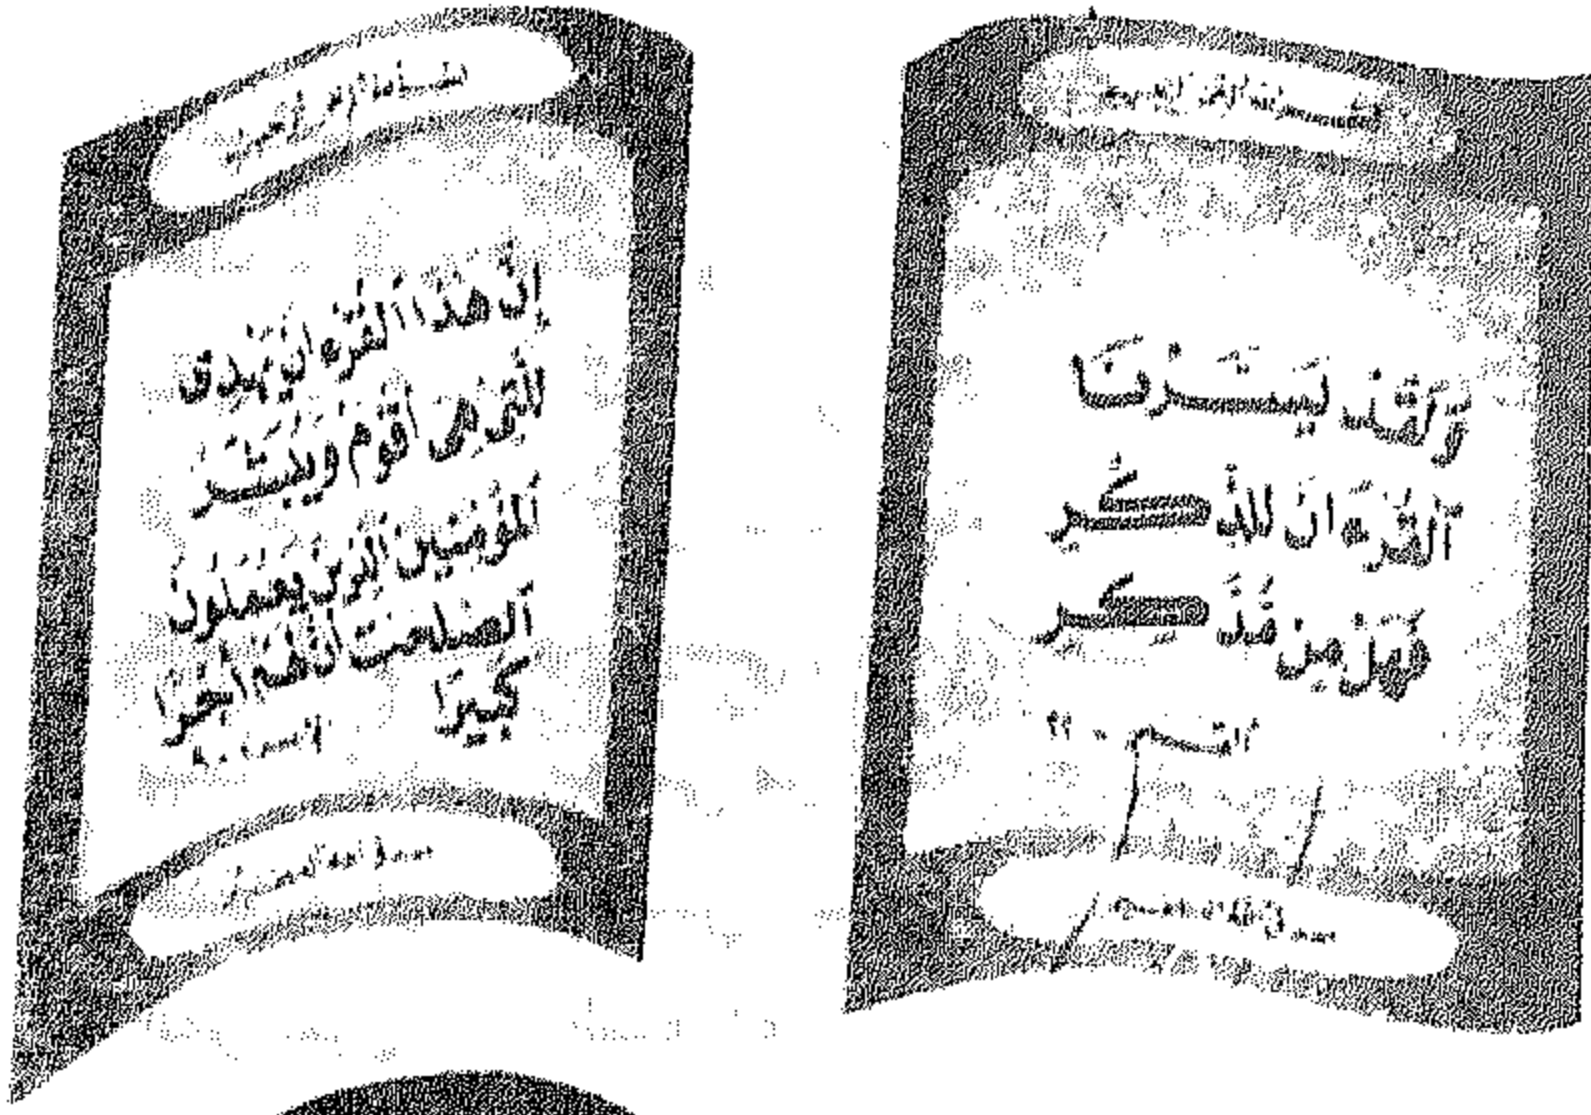 بسم الله الرحمن الرحيم
وَلَقَدْ يَسَّرْنَا
ٱلْقُرْءَانَ لِلذِّكْرِ
فَهَلْ مِن مُّدَّكِرٍ
القمر - ٢٢
صدق الله العظيم
بسم الله الرحمن الرحيم
إِنَّ هَٰذَا ٱلْقُرْءَانَ يَهْدِى
لِلَّتِى هِىَ أَقْوَمُ وَيُبَشِّرُ
ٱلْمُؤْمِنِينَ ٱلَّذِينَ يَعْمَلُونَ
ٱلصَّٰلِحَٰتِ أَنَّ لَهُمْ أَجْرًا
كَبِيرًا
الإسراء - ٩
صدق الله العظيم